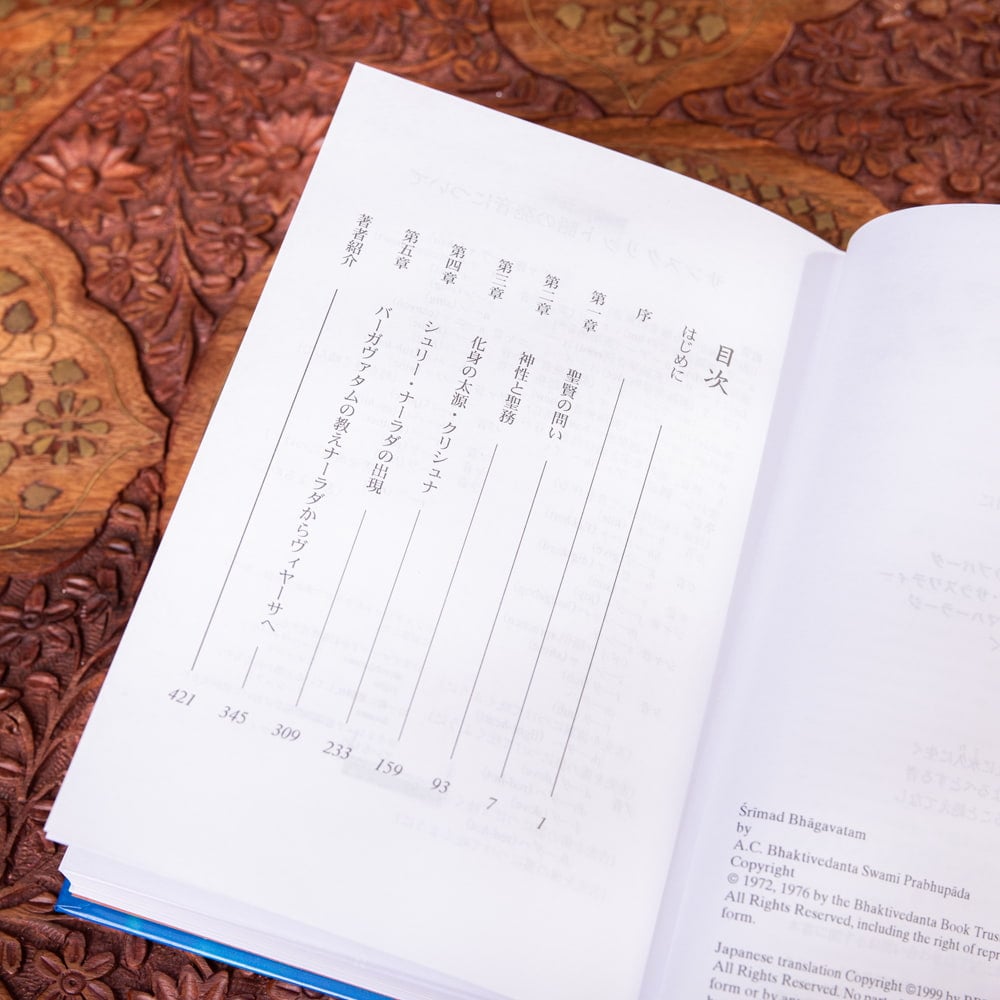 目次
はじめに 1
序 7
第一章 聖賢の問い 93
第二章 神性と聖務 159
第三章 化身の太源・クリシュナ 233
第四章 シュリー・ナーラダの出現 309
第五章 バーガヴァタムの教えナーラダからヴィヤーサへ 345
著者紹介 421
Śrīmad Bhāgavatam
by
A.C. Bhaktivedanta Swami Prabhupāda
Copyright
© 1972, 1976 by the Bhaktivedanta Book Trus
All Rights Reserved, including the right of repr
form.
Japanese translation Copyright ©1999 by
All Rights Reserved. No
form or by